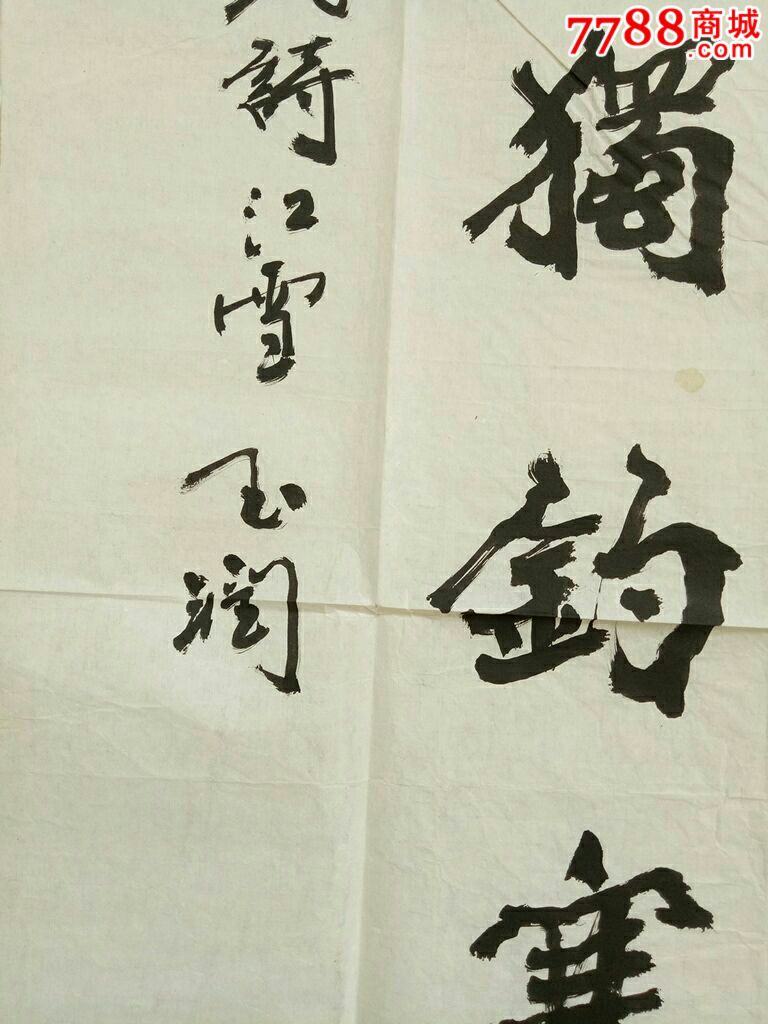 7788商城
.com
獨釣寒
詩江雪 玉潤